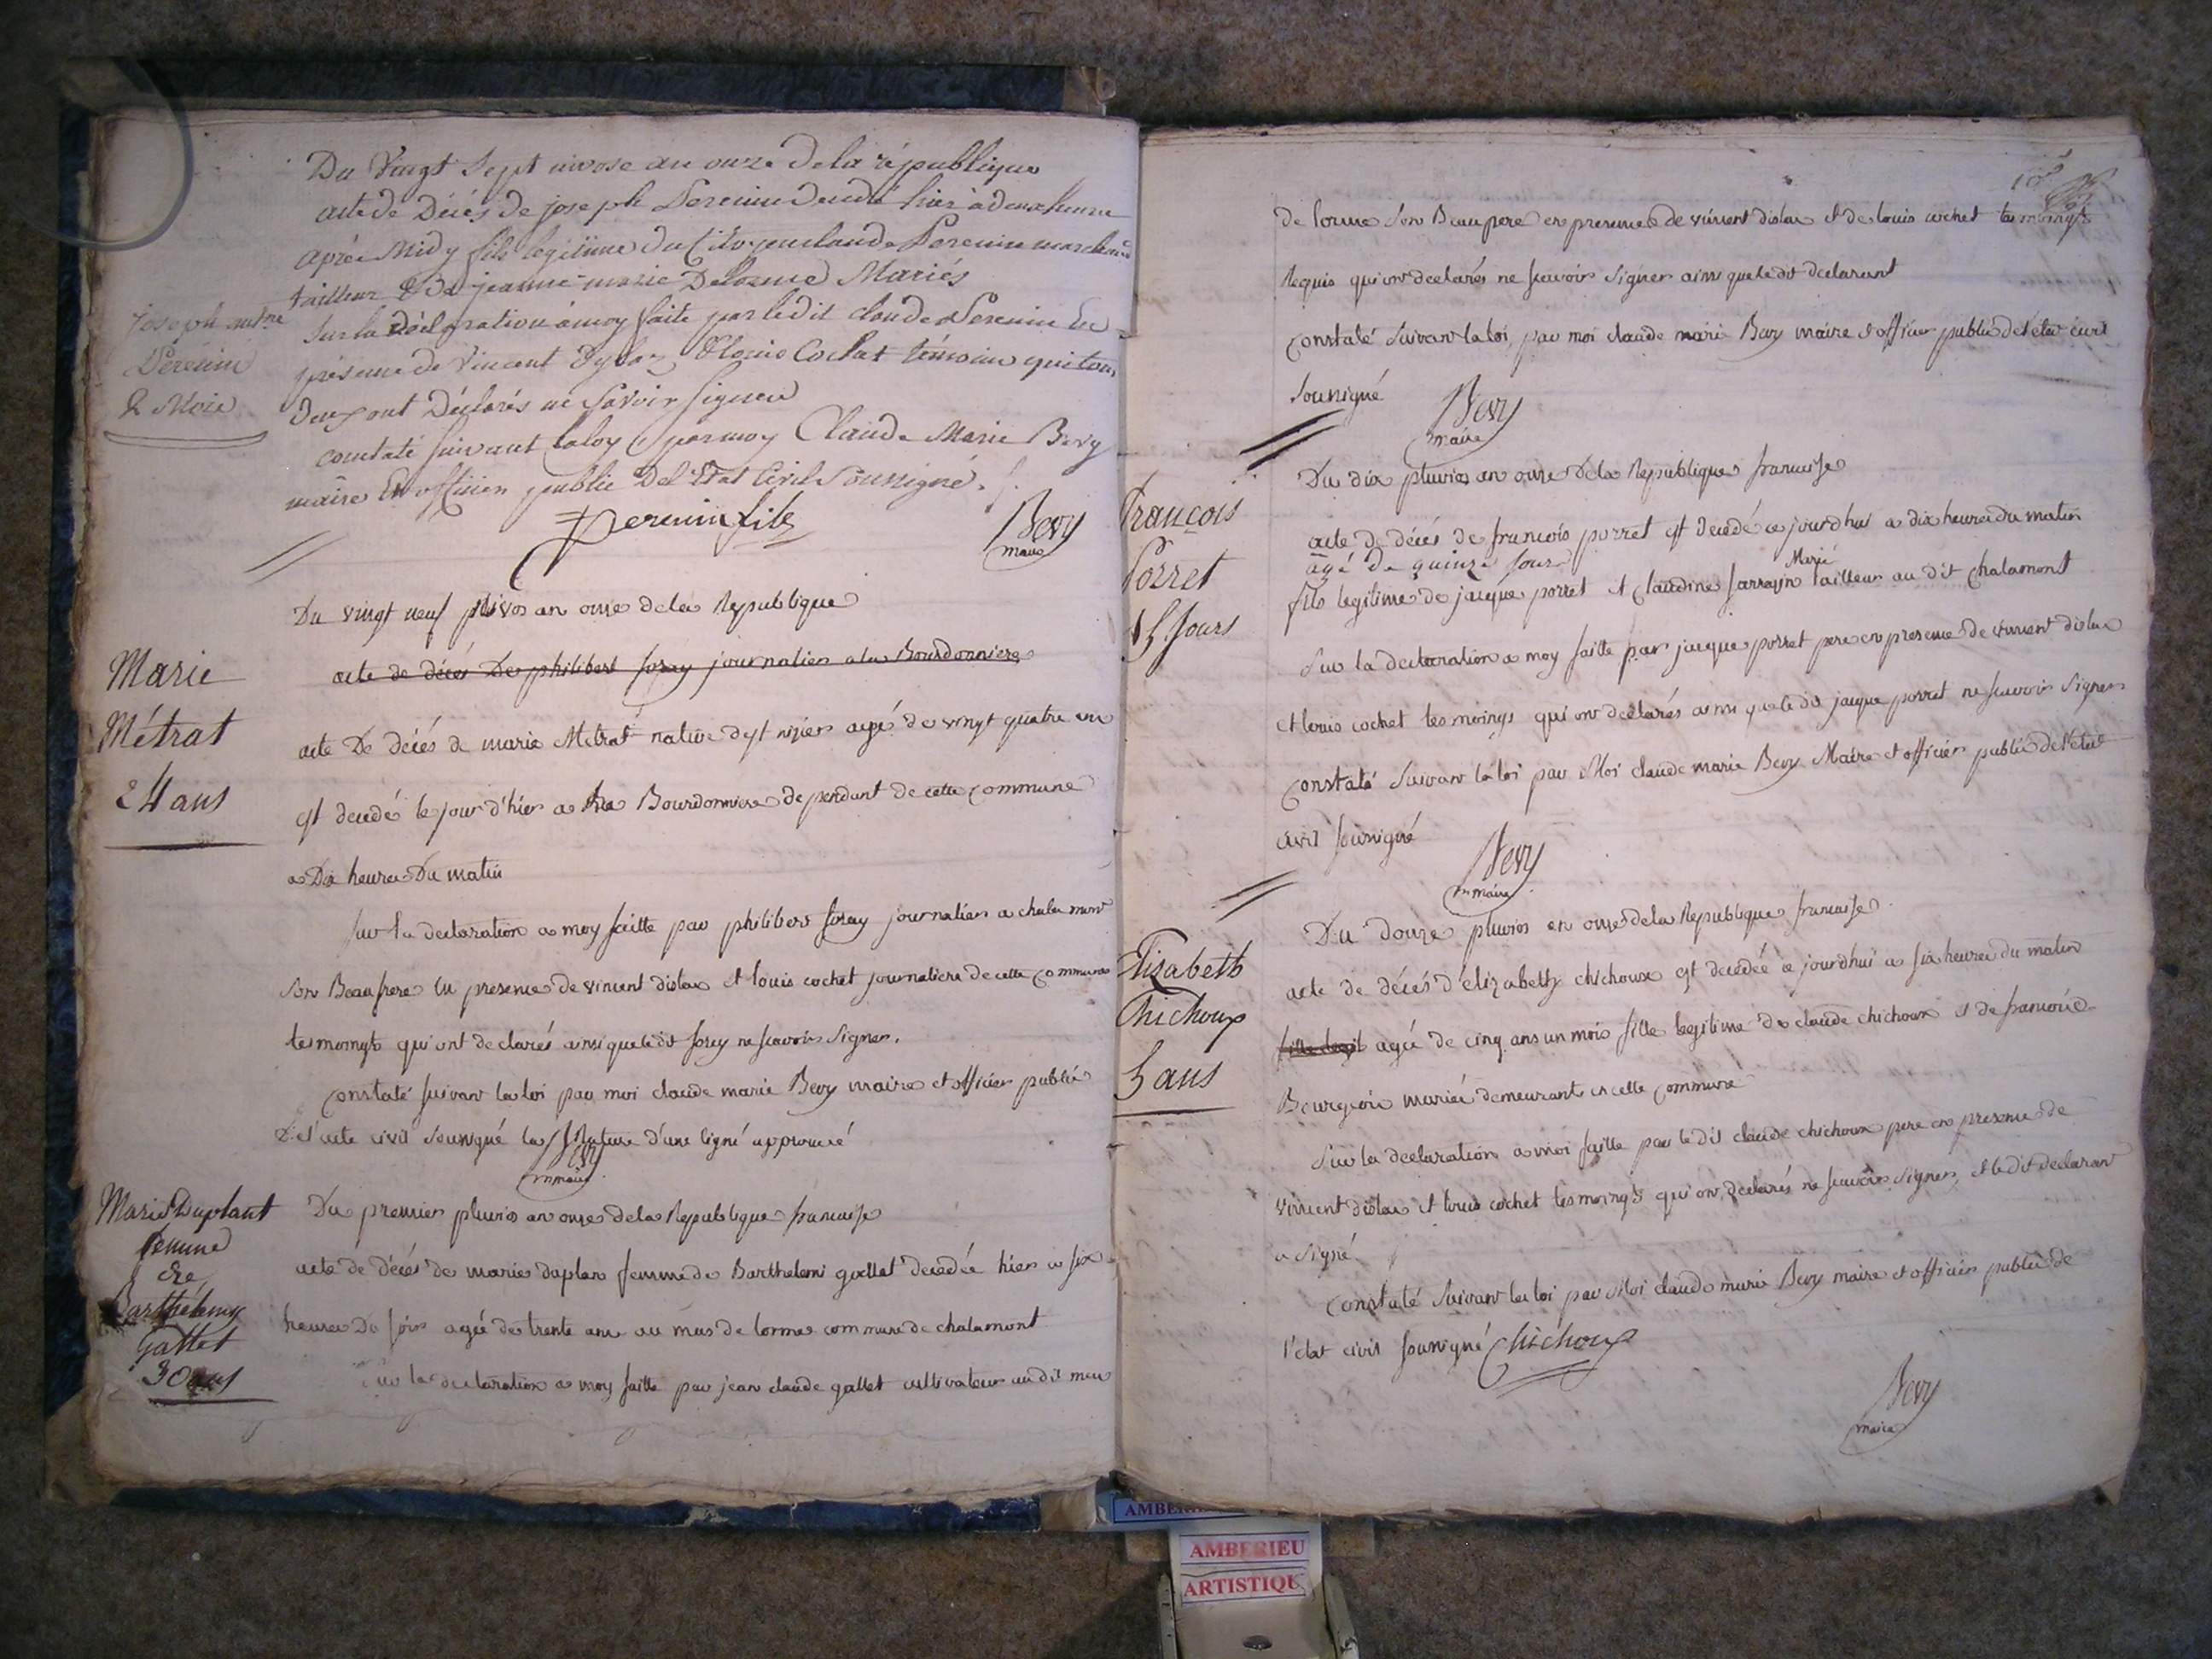 Du vingt sept nivose an onze de la république
acte de Décés de joseph Perenin Decedé hier à deux heure
aprés Midy fils legitime du Citoyen claude Perenin marchand
tailleur & De jeanne marie Delorme Mariés
Sur la Déclaration à moy faite par ledit claude Perenin En
présence de Vincent Dyslaz & louis Cochat témoins qui tous
Deux ont Déclarés ne Savoir Signer
constaté suivant la loy par moy Claude Marie Bevy
maire Et officier public De l'Etat Civil Soussigné.
Perenin fils
Bevy
maire
Joseph
Pérénin
2 Mois
Du vingt neuf nivos an onze de la Republique
acte de décés De philibert foray journalier a la Bourdonniere
Marie
Métrat
24 ans
acte De décés de marie Metrat native de st nizier agé de vingt quatre ans
est decedé le jour d'hier a la Bourdonniere dependant de cette commune
a Dix heures Du matin
sur la declaration a moy faitte par philibert foray journalier a chalamont
son Beaufrere en presence de vincent dislax et louis cochet journaliers de cette commune
tesmoingts qui ont declarés ainsi que ledit foray ne scavoir signer.
constaté suivant la loi par moi claude marie Bevy maire et officier public
De l'acte civil soussigné la Rature d'une ligné approuvé
Bevy
maire
Marie Duplant
femme
de
Barthélemy
Gallet
30 ans
Du premier pluvios an onze de la Republique francaise
acte de décés de marie duplan femme de Barthelemi gallet decedée hier a six
heures Du soir agée de trente ans au mas de lorme commune de chalamont
Sur la declaration a moy faitte par jean claude gallet cultivateur au dit mas
de lorme son Beaupere en presence de vincent dislax et de louis cochet tesmoingts
Requis qui ont declarés ne scavoir signer ainsi que le dit declarant
constaté suivant la loi par moi claude marie Bevy maire et officier public de l'etat civil
soussigné
Bevy
maire
Du dix pluvios an onze De la Republique francaise
François
Porret
15 Jours
acte de décés de francois porret est decedé ce jourdhui a dix heures du matin
âgé de quinze jours
Marié
fils legitime de jacque porret et claudine sarrasin tailleur au dit chalamont
sur la declaration a moy faitte par jacque porret pere en presence de vincent dislax
et louis cochet tesmoings qui ont declarés ainsi que le dit jacque porret ne scavoir signer
constaté suivant la loi par Moi claude marie Bevy Maire et officier public de l'etat
civil soussigné
Bevy
maire
Du douze pluvios an onze de la Republique francaise.
Elizabeth
Chichoux
5 ans
acte de décés d'élizabeth chichoux est decedée ce jourdhui a six heures du matin
fille legit agée de cinq ans un mois fille legitime de claude chichoux et de francoise
Bourgeois mariée demeurants en cette commune
Sur la declaration a moi faitte par le dit claude chichoux pere en presence de
vincent dislax et louis cochet tesmoingts qui ont declarés ne scavoir signer, et le dit declarant
a signé
constaté suivant la loi par Moi claude marie Bevy maire et officier public de
l'etat civil soussigné Chichoux
Bevy
maire
AMBERIEU
ARTISTIQU